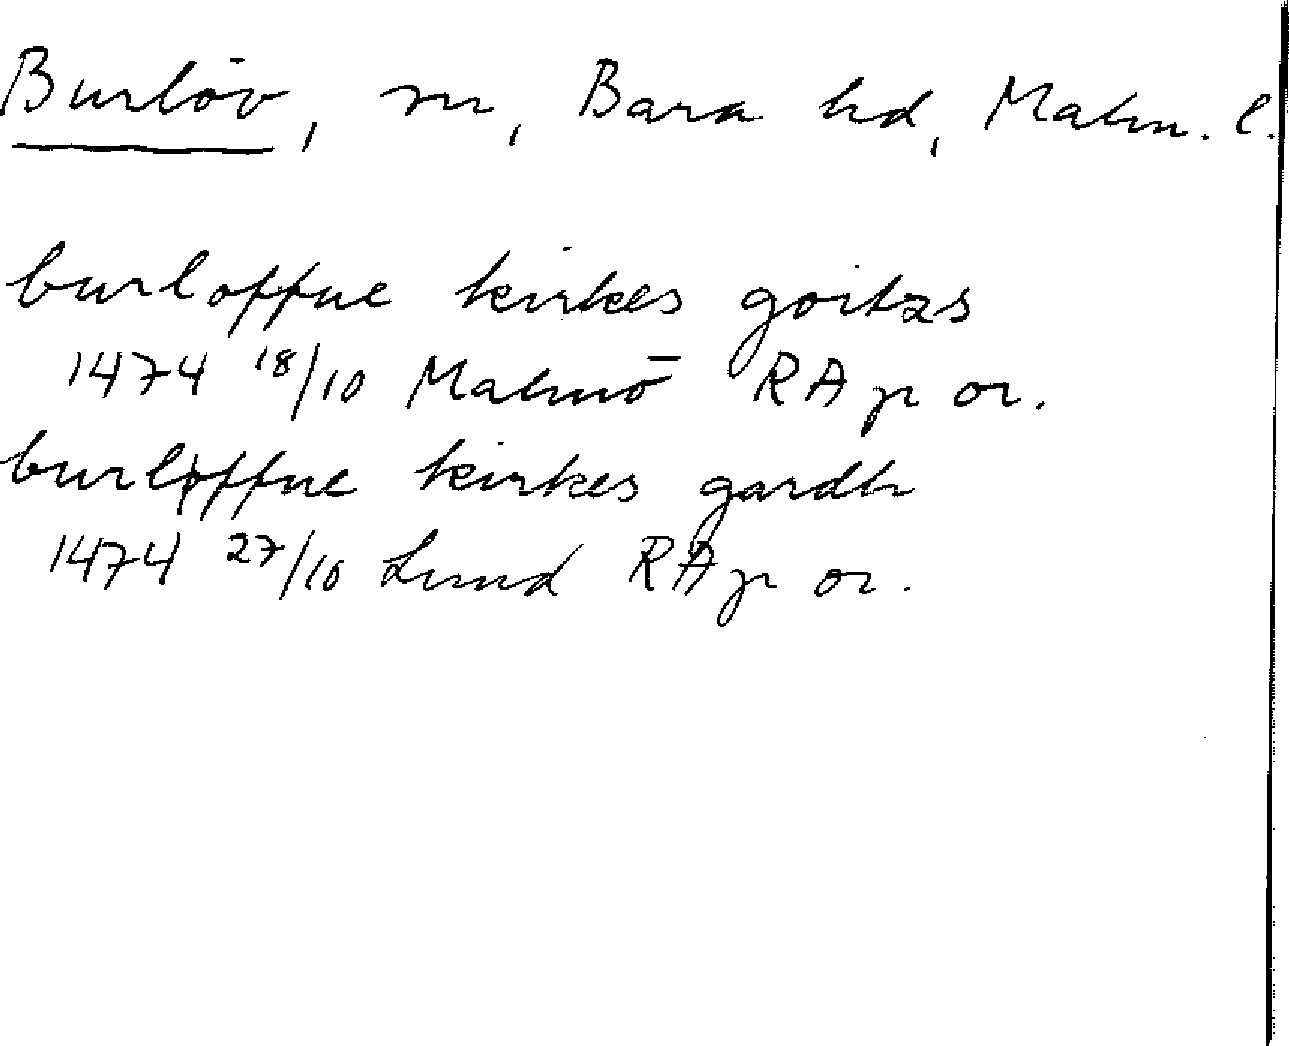 Burlöv, sn, Bara hd, Malm. l.
burloffue kirkes goitzs
1474 18/10 Malmö RAp or.
burløffue kirkes gardh
1474 27/10 Lund RAp or.